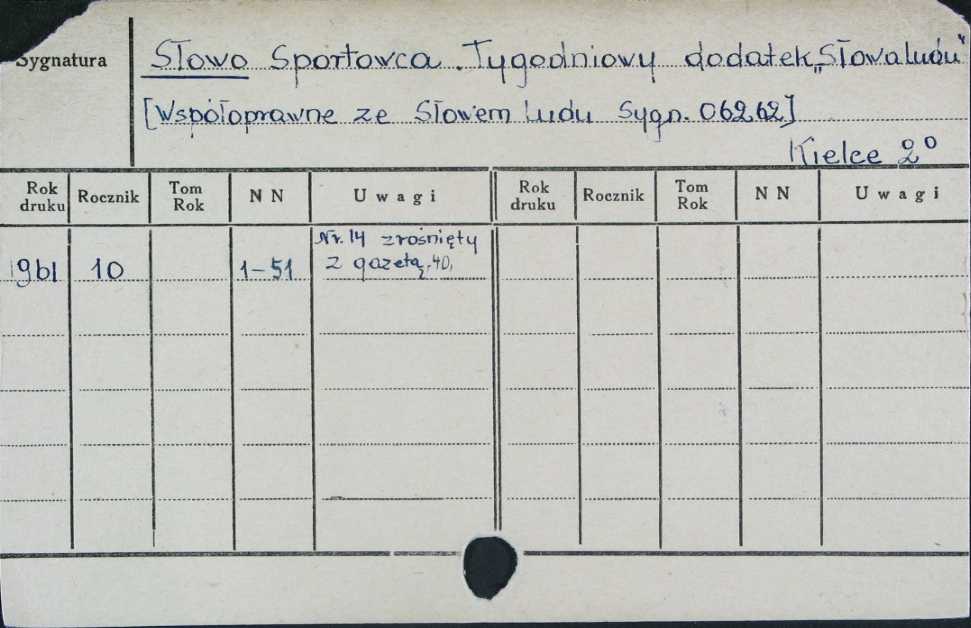 Sygnatura
Słowo Sportowca. Tygodniowy dodatek „Słowa Ludu"
[Współoprawne ze Słowem Ludu Sygn. 06262]
Kielce 2⁰
Rok druku Rocznik Tom Rok NN Uwagi Rok druku Rocznik Tom Rok NN Uwagi
Nr. 14 zrośnięty
1961 10 1-51 z gazetą.40,